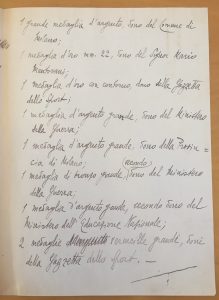 1 grande medaglia d'argento, dono del Comune di
Milano;
1 medaglia d'oro mm. 22, dono del Signor Mario
1 medaglia d'oro con contorno, dono della Gazzetta
dello Sport;
1 medaglia d'argento grande, dono del Ministero
della Guerra;
1 medaglia d'argento grande, dono della Provin=
cia di Milano; (secondo)
1 medaglia di bronzo grande, dono del Ministero
della Guerra;
1 medaglia d'argento grande, secondo dono del
Ministero dell'Educazione Nazionale;
2 medaglie vermeille grandi, doni
della Gazzetta dello Sport. —